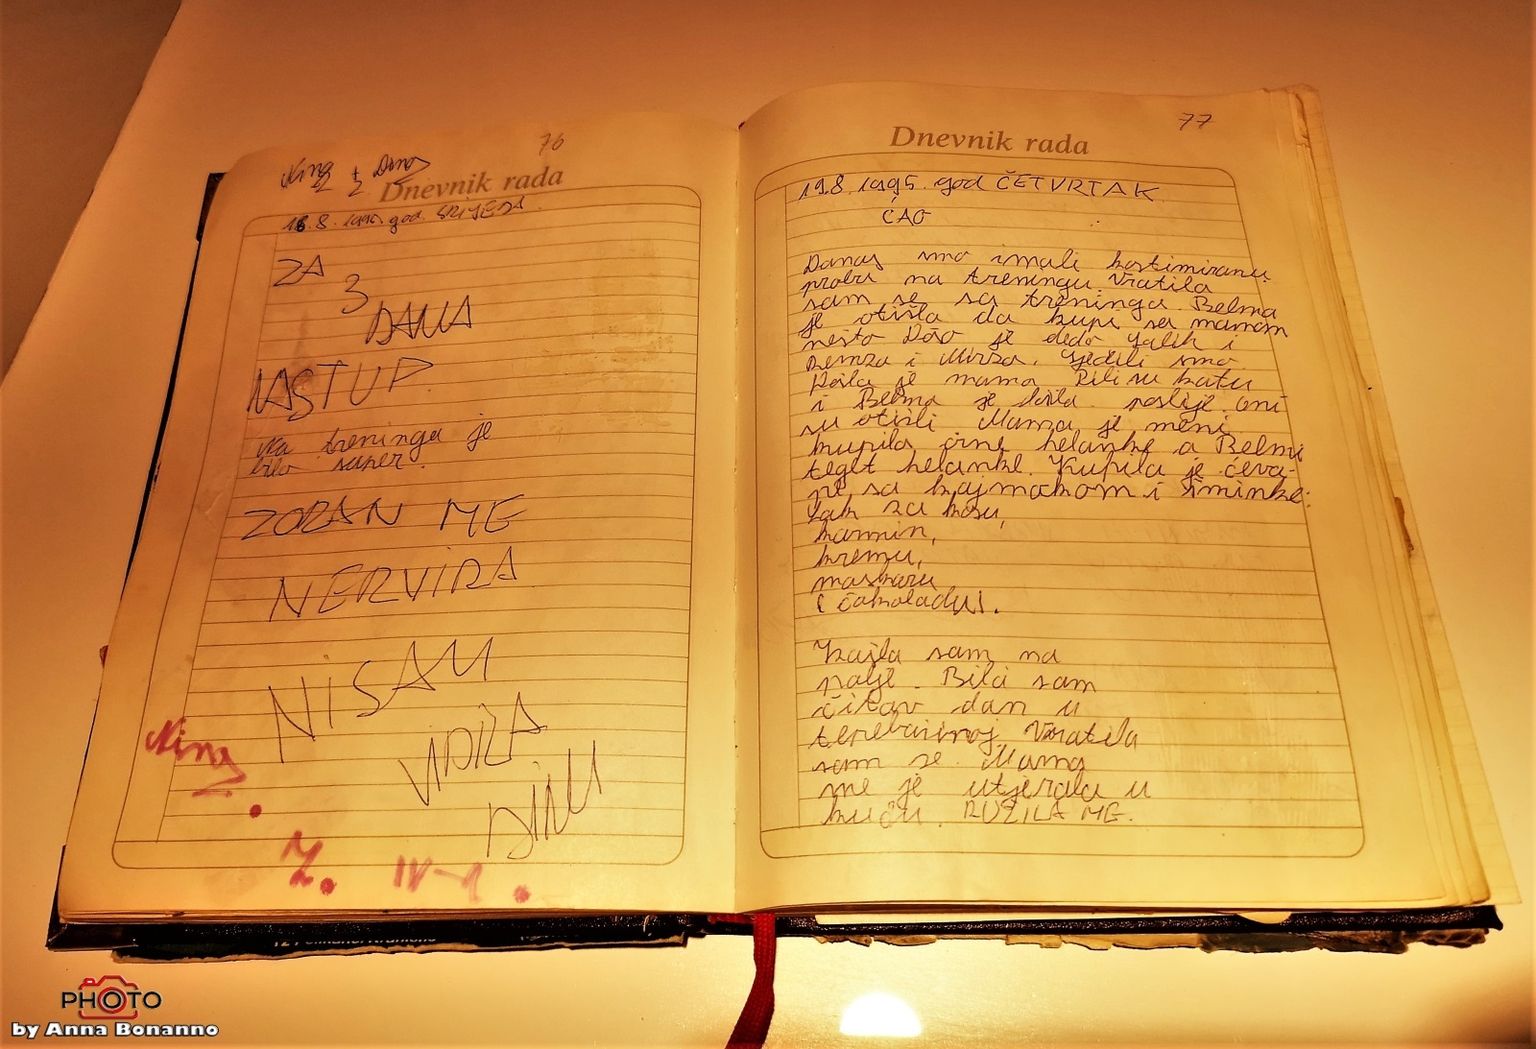 76
Nina +
Dnevnik rada
16.8. 1995 god. SRIJEDA
ZA
3
DANA
NASTUP
Na treninga je
bilo super.
ZORAN ME
NERVIRA
NISAM
VIDILA
DINU
Nina
Z. IV-1.
77
Dnevnik rada
19.8. 1995. god ČETVRTAK
ĆAO
Danas smo imali kostimiranu
probu na treningu. Vratila
sam se sa treninga. Belma
je otišla da kupi sa mamom
nešto Došo je dedo Salih i
Remza i Mirza. Sjedili smo
Došla je mama Pili su kafu
i Belma je došla. poslije oni
su otišli Mama je meni
kupila crne helanke a Belmi
teget helanke. Kupila je ćeva-
pe sa kajmakom i šminke:
lak za kosu,
karmin,
kremu,
maskaru
i čokoladu.
Izašla sam na
polje. Bila sam
čitav dan u
Vratila
sam se. Mama
me je utjerala u
kuću. RUŽILA ME.
PHOTO
by Anna Bonanno